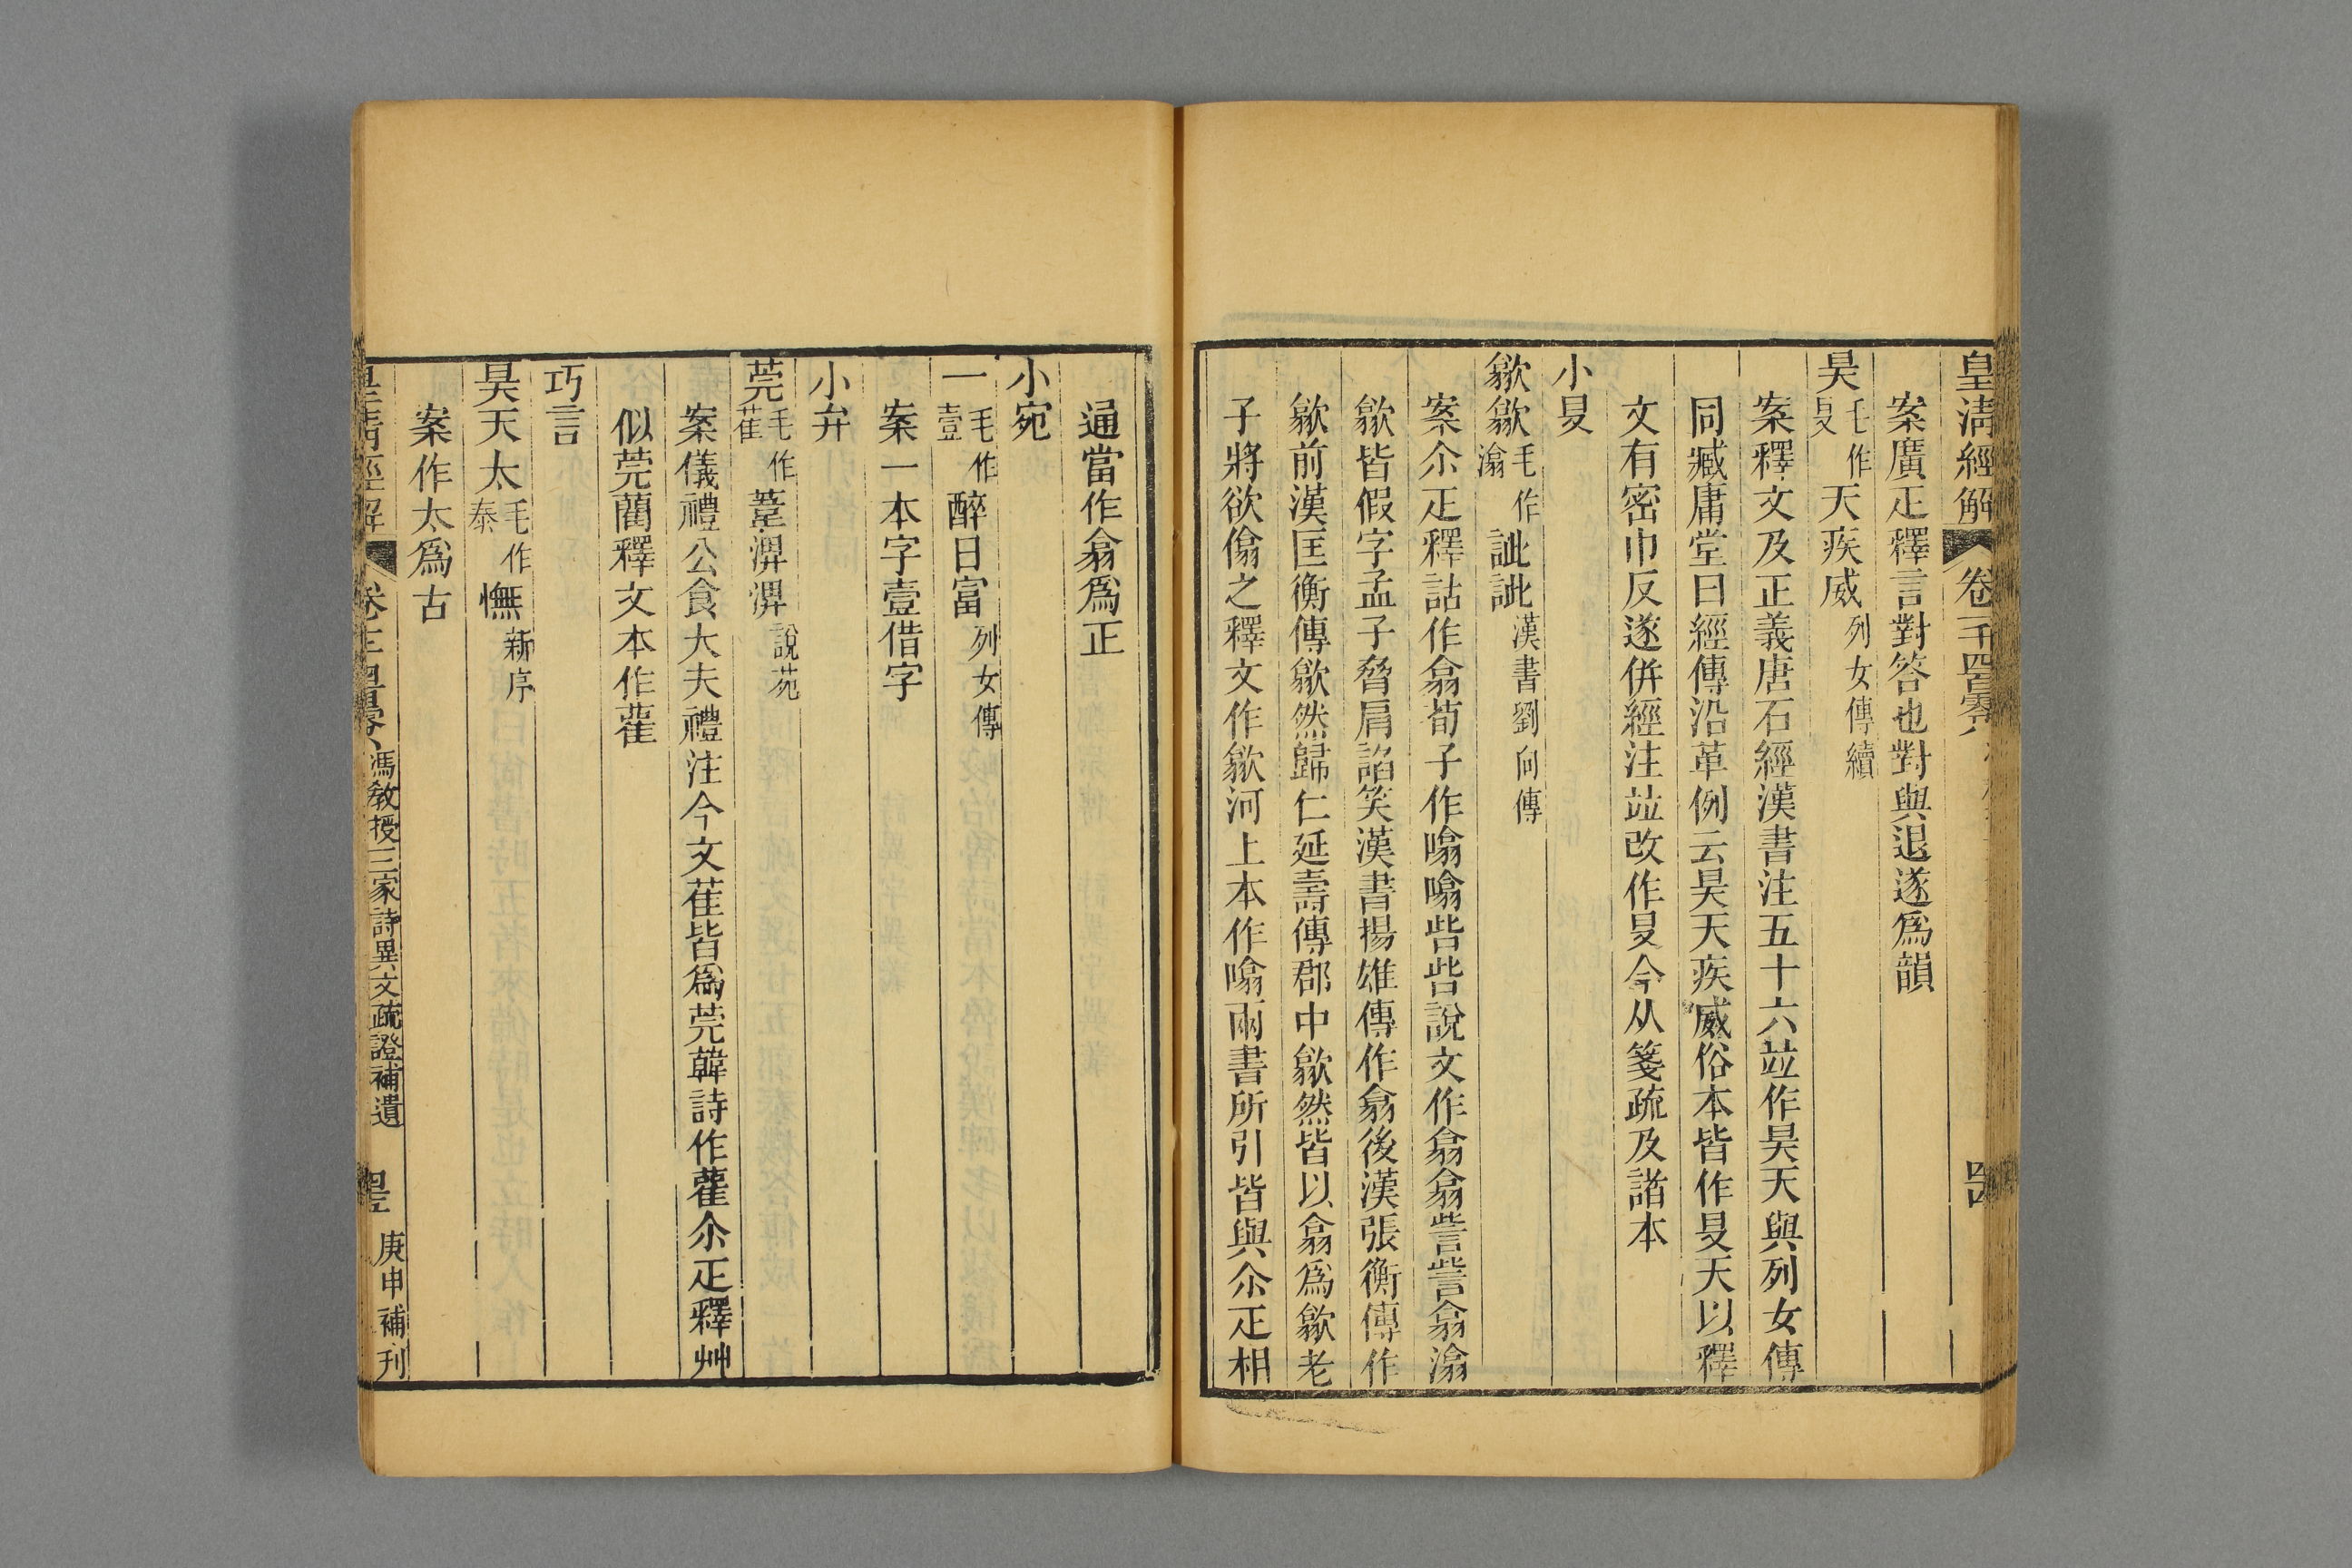 皇清經解 卷一千四百零八
案廣疋釋言對答也對與退遂爲韻
昊毛作旻天疾威列女傳續
案釋文及正義唐石經漢書注五十六竝作昊天與列女傳
同臧庸堂曰經傳沿革例云昊天疾威俗本皆作旻天以釋
文有密巾反遂併經注竝改作旻今从箋疏及諸本
小旻
歙歙毛作潝訿訿漢書劉向傳
案尒疋釋詁作翕荀子作噏噏呰呰說文作翕翕訾訾翕潝
歙皆假字孟子脅肩諂笑漢書揚雄傳作翕後漢張衡傳作
歙前漢匡衡傳歙然歸仁延壽傳郡中歙然皆以翕爲歙老
子將欲傓之釋文作歙河上本作噏兩書所引皆與尒疋相
通當作翕爲正
小宛
一毛作壹醉日富列女傳
案一本字壹借字
小弁
莞毛作萑葦淠淠說苑
案儀禮公食大夫禮注今文萑皆爲莞韓詩作雚尒疋釋艸
似莞藺釋文本作雚
巧言
昊天太毛作泰憮新序
案作太爲古
皇清經解 馮教授三家詩異文疏證補遺 庚申補刊